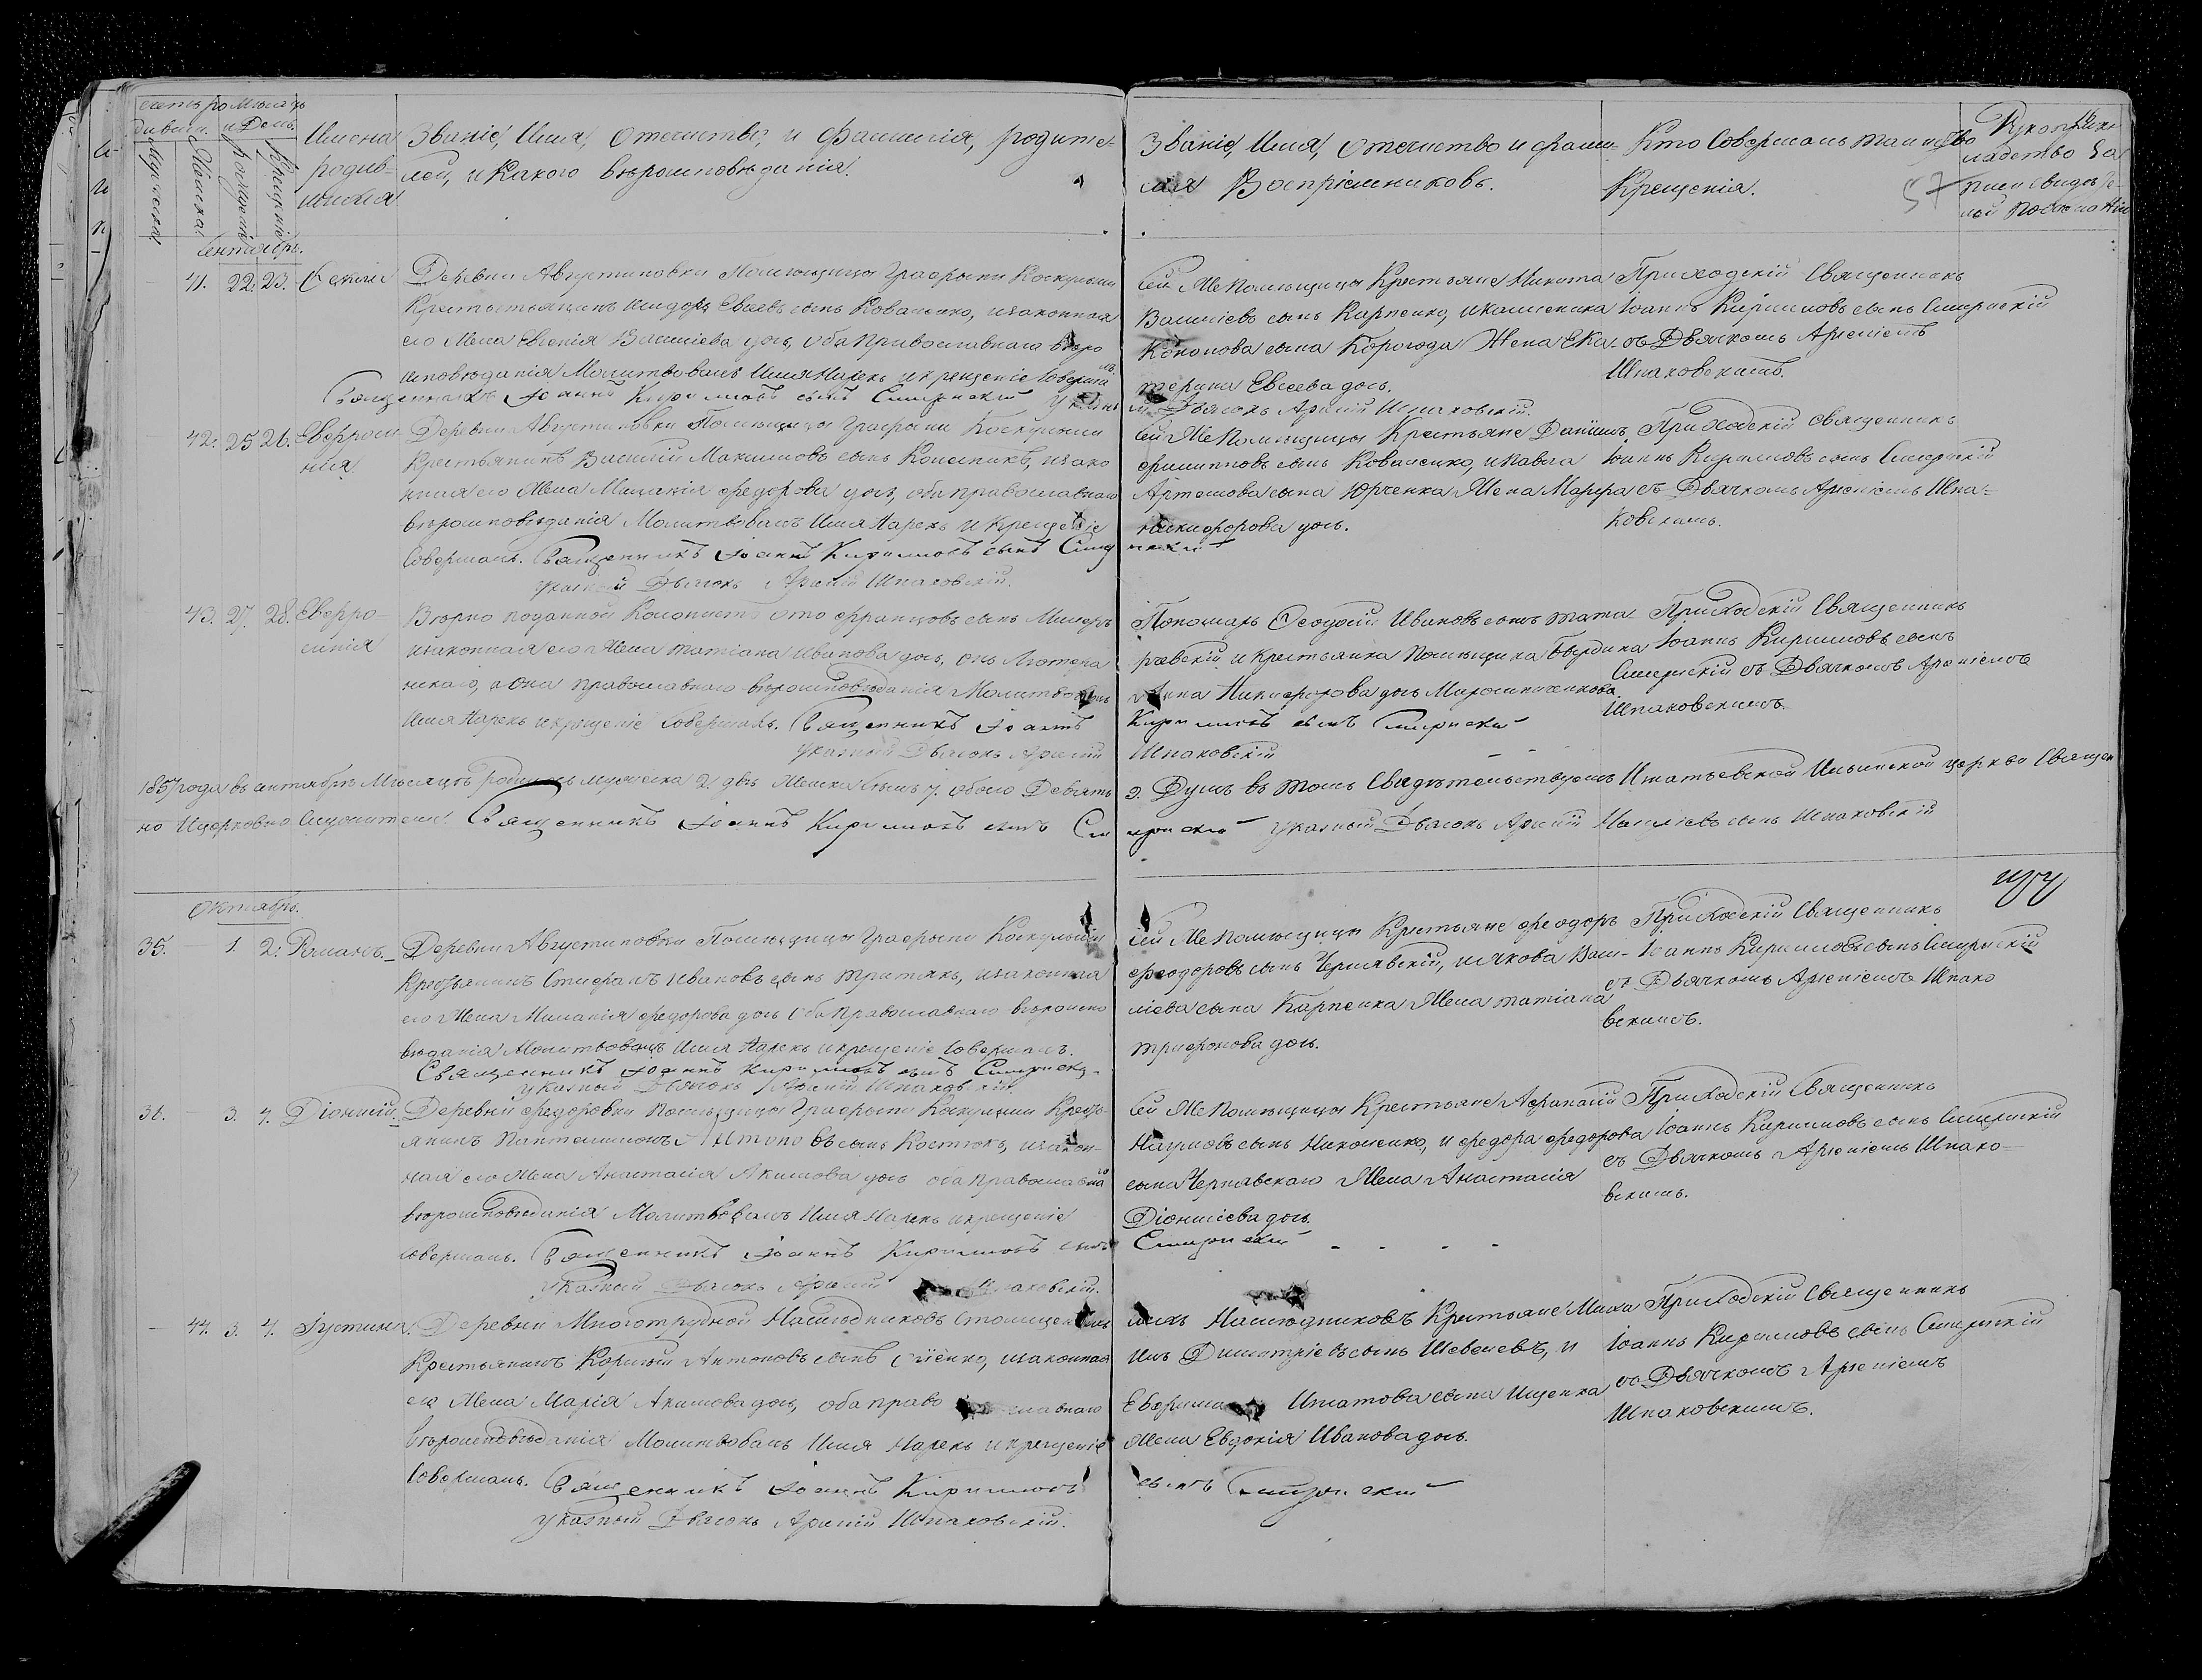 Счетъ ро Мѣсяцъ
дивши. и День.
Мужеска Женска рожденія Крещенія
Имена
родив-
шихся
Званіе, Имя, Отечество, и Фамилія, родите-
лей, и Какого вѣроисповѣданія.
Званіе, Имя, Отечество и фами-
лія Воспріемниковъ.
Кто Совершалъ таинство
Крещенія.
57
Рукопри
ладство За
писи свидѣте-
лей по желанію
Сентябрь.
41. 22. 23.
Деревни Августиновки Помѣщицы Графыни Коскульши
Крестьянинъ Исидоръ Евсѣевъ сынъ Коваленко, и законная
его Жена Евгенія Василіева дочь, оба Православнаго вѣро
исповѣданія Молитвовалъ Имя Нарекъ и крещеніе Соверша
Священникъ Іоаннъ Кирилловъ сынъ Смирнскій
Сей же Помѣщицы Крестьяне Никита
Василіевъ сынъ Карпенко, и Калиника
Кононова сына Корогода Жена Ека-
терина Евсеева дочь.
Дьячокъ Арсеній Шпаковскій.
Приходскій Священникъ
Іоаннъ Кирилловъ сынъ Смирнскій
съ Дьячкомъ Арсеніемъ
Шпаковскимъ.
42. 25 26. Евфроси-
нія
Деревни Августиновки Помѣщицы Графыни Коскульши
Крестьянинъ Василій Максимовъ сынъ Колесникъ, и зако
нная его Жена Меланія Федорова дочь, оба православнаго
вѣроисповѣданія Молитвовалъ Имя Нарекъ и Крещеніе
Совершалъ. Священникъ Іоаннъ Кирилловъ сынъ Смир
нскій
Указный Дьячокъ Арсеній Шпаковскій.
Сей же Помѣщицы Крестьяне Даніилъ
Филипповъ сынъ Коваленко, и Павла
Артемова сына Юрченка Жена Марфа
Никифорова дочь.
Приходскій священникъ
Іоаннъ Кирилловъ сынъ Смирнскій
съ Дьячкомъ Арсеніемъ Шпа-
ковскимъ.
43. 27. 28. Евфро-
синія
Вѣрно поданной Колонистъ Ото Францовъ сынъ Миллеръ
и законная его Жена Татіана Иванова дочь, онъ Лютера
нскаго, а Она Православнаго вѣроисповѣданія Молитвовалъ
Имя Нарекъ и крещеніе Совершалъ. Священникъ Іоаннъ
Кирилловъ сынъ Смирнскій
Указный Дьячокъ Арсеній
Шпаковскій
Пономарь Феодосій Ивановъ сынъ Тата-
ревскій и Крестьянка помѣщика Бердика
Анна Никифорова дочь Мирошниченкова.
Приходскій Священникъ
Іоаннъ Кирилловъ сынъ
Смирнскій съ Дьячкомъ Арсеніемъ
Шпаковскимъ.
1857 года въ сентябрѣ Мѣсяцѣ Родилось мужеска 2. двѣ Женска семь 7. обоего Девять
9. Душъ въ томъ Свидѣтельствуемъ Игнатьевской Ильинской церкви Священ
но И церковно Служители. Священникъ Іоаннъ Кирилловъ сынъ См
ирнскій Указный Дьячокъ Арсеній сынъ Шпаковскій
Октябрь.
35. - 1. 2. Романъ.
Деревни Августиновки Помѣщицы Графыни Коскульши
Крестьянинъ Стефанъ Ивановъ сынъ Третякъ, и законная
его Жена Меланія Федорова дочь Оба Православнаго вѣроиспо
вѣданія Молитвовалъ Имя Нарекъ и крещеніе Совершалъ.
Священникъ Іоаннъ Кирилловъ сынъ Смирнскій
Указный Дьячокъ Арсеній Шпаковскій.
Сей же Помѣщицы Крестьяне Феодоръ
Феодоровъ сынъ Чернявскій, и Якова Васи-
ліева сына Карпенка Жена Татіана
Трифонова дочь.
Приходскій Священникъ
Іоаннъ Кирилловъ сынъ Смирнскій
съ Дьячкомъ Арсеніемъ Шпако
вскимъ.
36. - 3. 4. Діонисій.
Деревни Федоровки помѣщицы Графыни Коскульши Кресть-
янинъ Пантелимонъ Антоновъ сынъ Костюкъ, и закон-
ная его Жена Анастасія Акимова дочь оба Православнаго
вѣроисповѣданія Молитвовалъ Имя Нарекъ и крещеніе
совершалъ. Священникъ Іоаннъ Кирилловъ сынъ
Смирнскій
Указный Дьячокъ Арсеній Шпаковскій.
Сей же Помѣщицы Крестьяне Афанасій
Наумовъ сынъ Николенко, и Федора Федорова
сына Чернявскаго Жена Анастасія
Діонисіева дочь.
Приходскій Священникъ
Іоаннъ Кирилловъ сынъ Смирнскій
съ Дьячкомъ Арсеніемъ Шпако-
вскимъ.
- 44. 3. 4. Іустина.
Деревни Многотрудной Наслѣдниковъ
Крестьянинъ Корнилій Антоновъ сынъ и законная
его Жена Марія Акимова дочь, оба право славнаго
вѣроисповѣданія Молитвовалъ Имя Нарекъ и крещеніе
Совершалъ. Священникъ Іоаннъ Кирилловъ
сынъ Смирнскій
Указный Дьячокъ Арсеній Шпаковскій.
Наслѣдниковъ Крестьяне Миха
илъ Димитріевъ сынъ Шевелевъ, и
Ефрима Игнатова сына Ищенка
Жена Евдокія Иванова дочь.
Приходскій Священникъ
Іоаннъ Кирилловъ сынъ Смирнскій
съ Дьячкомъ Арсеніемъ
Шпаковскимъ.